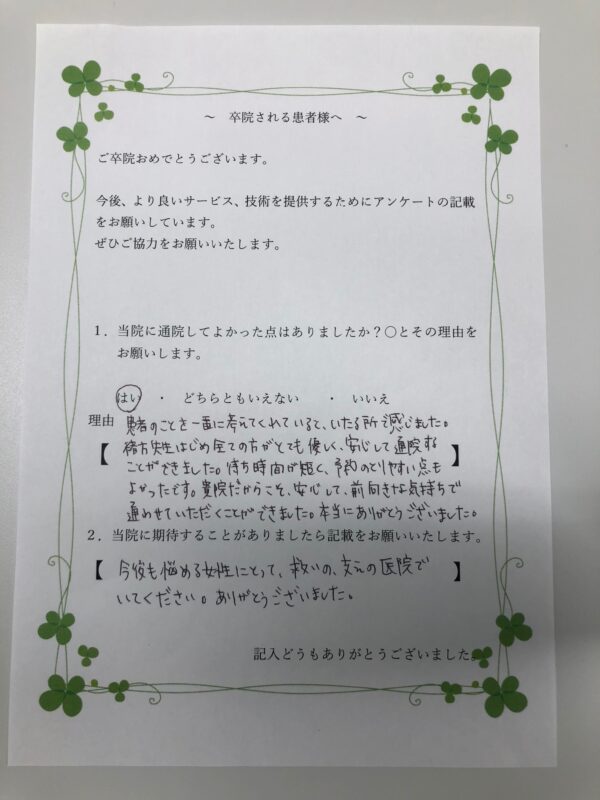 ～ 卒院される患者様へ ～
ご卒院おめでとうございます。
今後、より良いサービス、技術を提供するためにアンケートの記載
をお願いしています。
ぜひご協力をお願いいたします。
1．当院に通院してよかった点はありましたか？〇とその理由を
お願いします。
はい ・ どちらともいえない ・ いいえ
理由 患者のことを一番に考えてくれていると、いたる所で感じました。
【 緒方先生はじめ全ての方がとても優しく、安心して通院する 】
ことができました。待ち時間が短く、予約のとりやすい点も
よかったです。貴院だからこそ、安心して、前向きな気持ちで
通わせていただくことができました。本当にありがとうございました。
2．当院に期待することがありましたら記載をお願いいたします。
【 今後も悩める女性にとって、救いの、支えの医院で 】
いてください。ありがとうございました。
記入どうもありがとうございました。